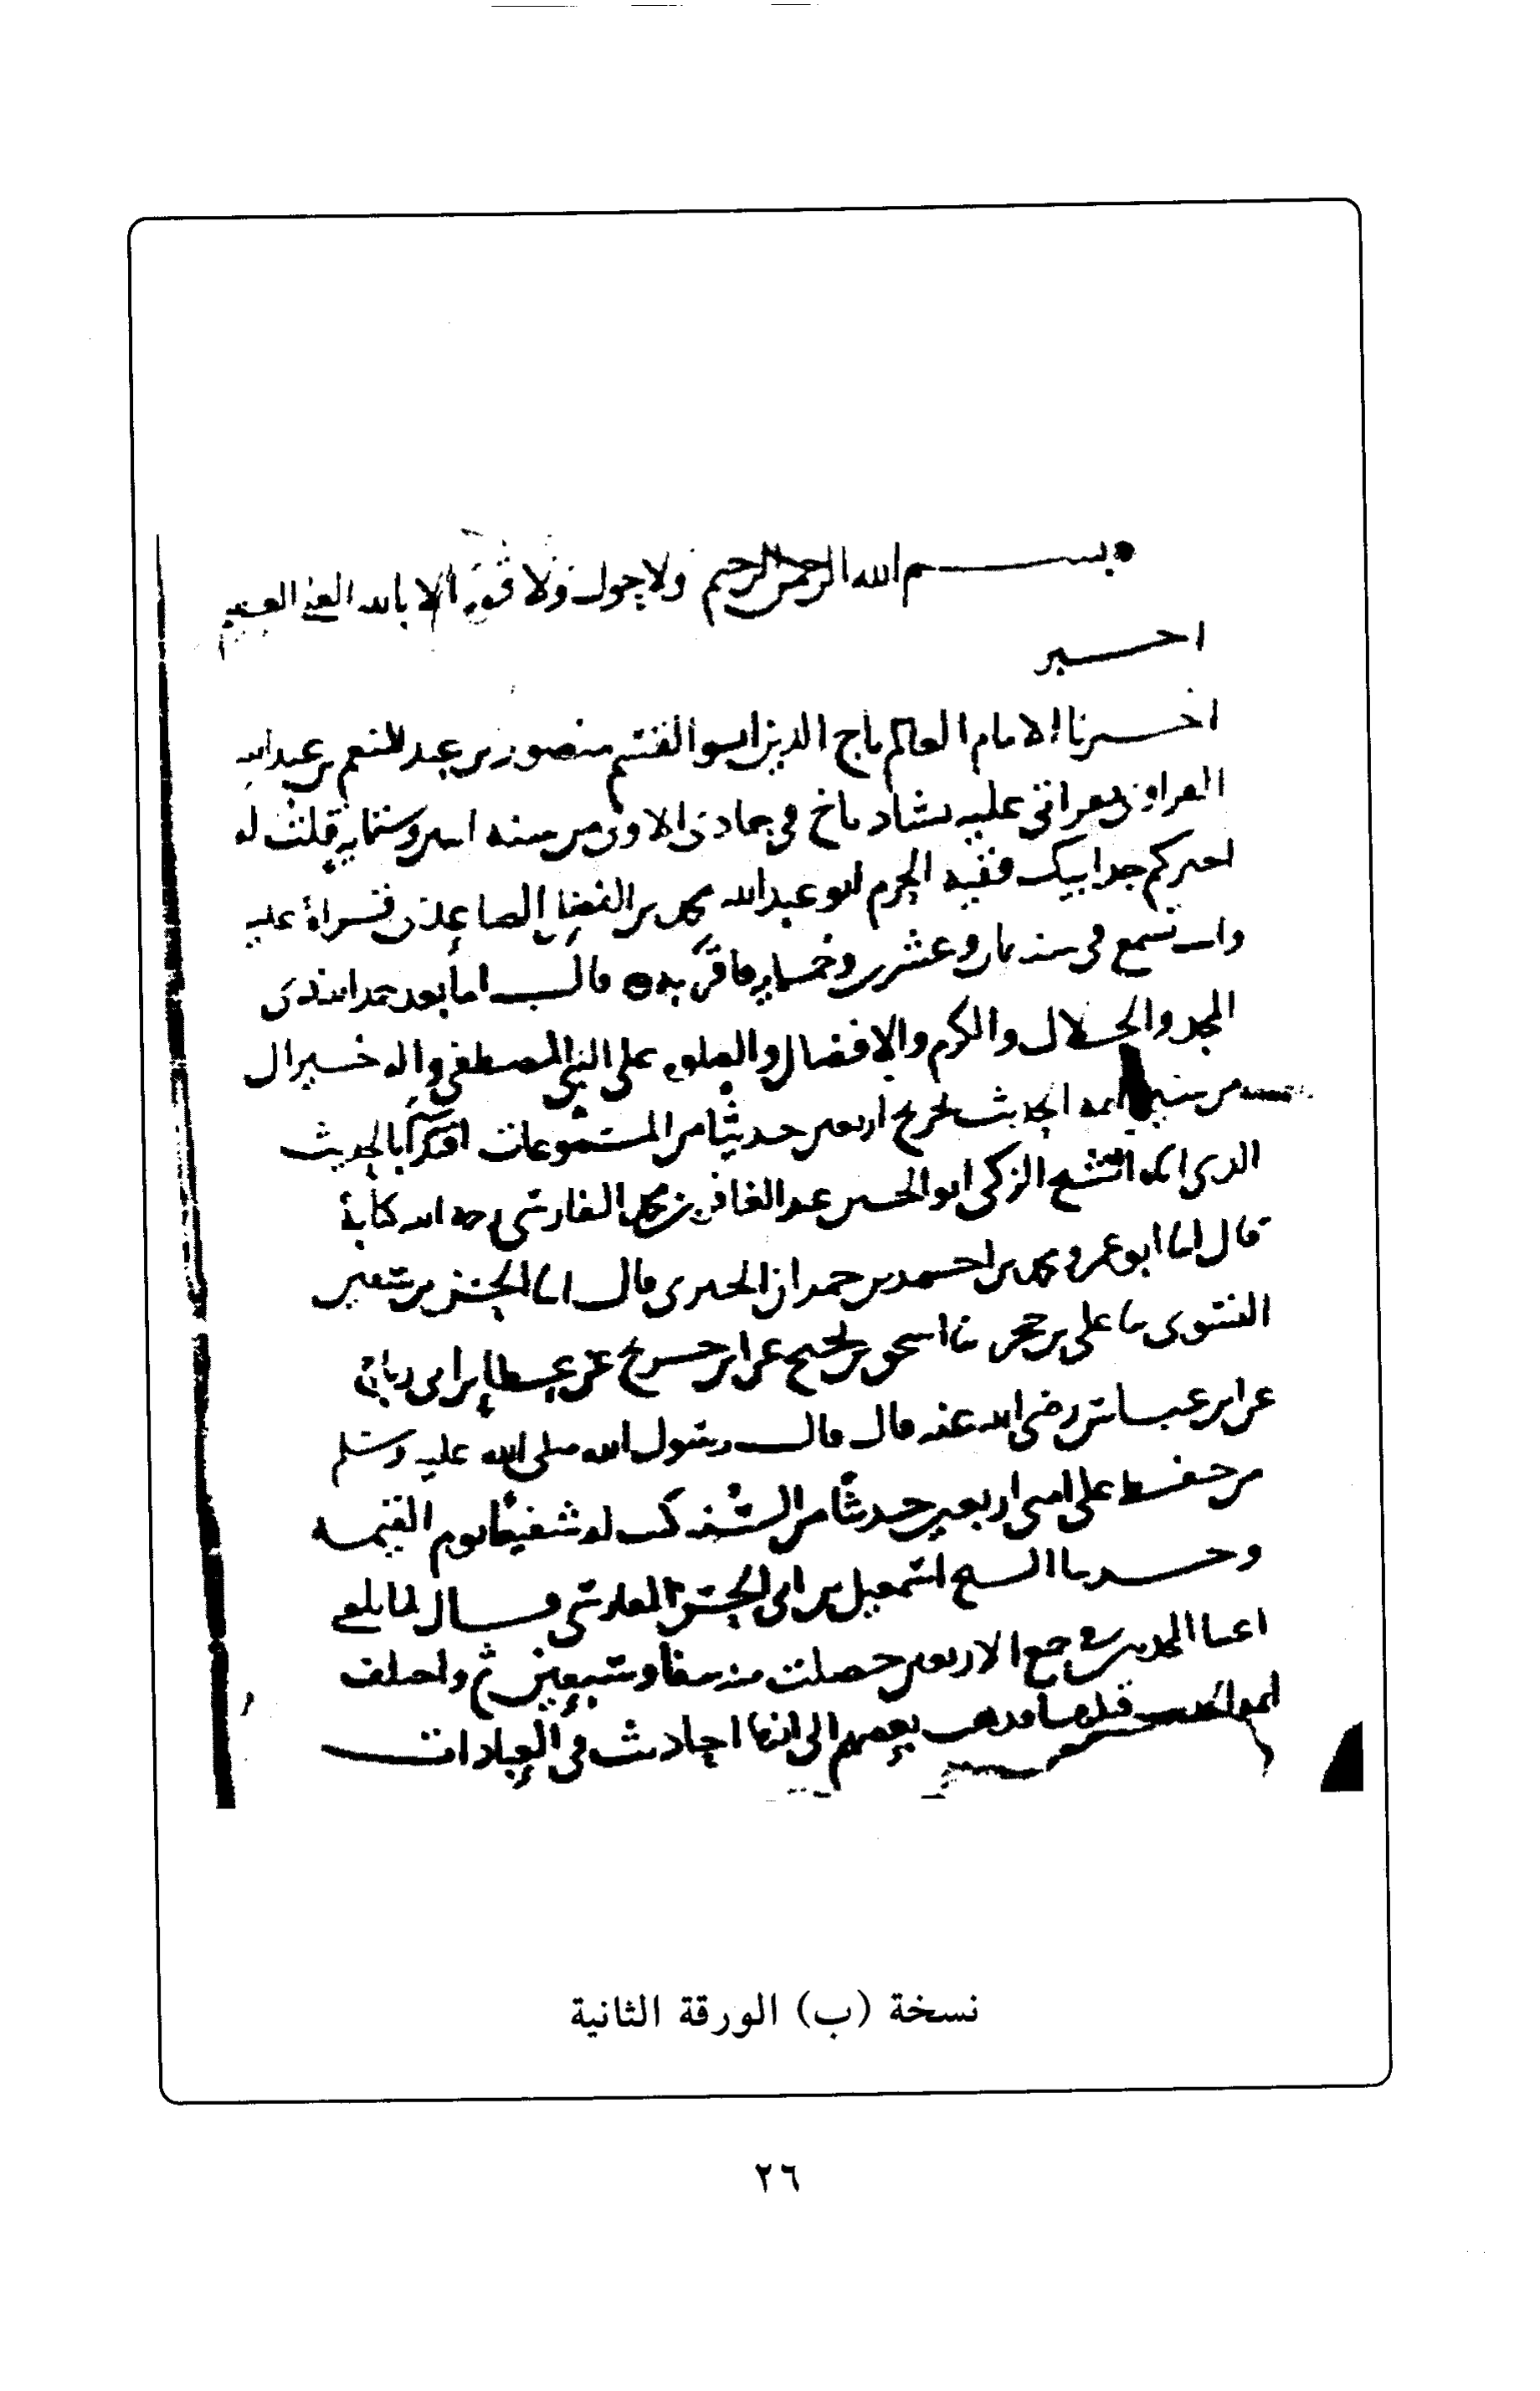 بسم الله الرحمن الرحيم ولا حول ولا قوة الا بالله العلي العظيم
اخبر
اخبرنا الامام العالم تاج الدين ابو القسم منصور بن عبد المنعم بن عبد الله
الفراوي بقراتي عليه بشادياخ في جمادى الاولى من سنه وستمايه قلت له
اخبركم جد ابيك فقيه الحرم ابو عبد الله محمد بن الفضل الصاعدي قراة عليه
وانت تسمع في سنه ثمان وعشرين وخمسمايه فاقر به قال اما بعد حمد الله ذي
المجد والجلال والكرم والافضال والصلوة على النبي المصطفى واله خير ال
من ايمه الحديث تخريج اربعين حديثا من المسموعات اقتدا بالحديث
الذي الشيخ الزكي ابو الحسين عبد الغافر بن محمد الفارسي رحمه الله كتابة
قال انا ابو عمرو محمد بن احمد بن حمدان الحيري قال انا الحسن بن سفين
النسوي نا علي بن حجر نا اسحق بن نجيح عن ابن جريج عن عطا بن ابي رباح
عن ابن عباس رضي الله عنه قال قال رسول الله صلى الله عليه وسلم
من حفظ على امتي اربعين حديثا من السنه كنت له شفيعا يوم القيمه
وحدثنا الشيخ اسمعيل بن ابي الحسن الفارسي قال لما بلغ
المحدثين في جمع الاربعين حصلت منه نيفا وسبعين ثم واختلف
قبلها فذهب بعضهم الى انها احاديث في العبادات
نسخة (ب) الورقة الثانية
٢٦